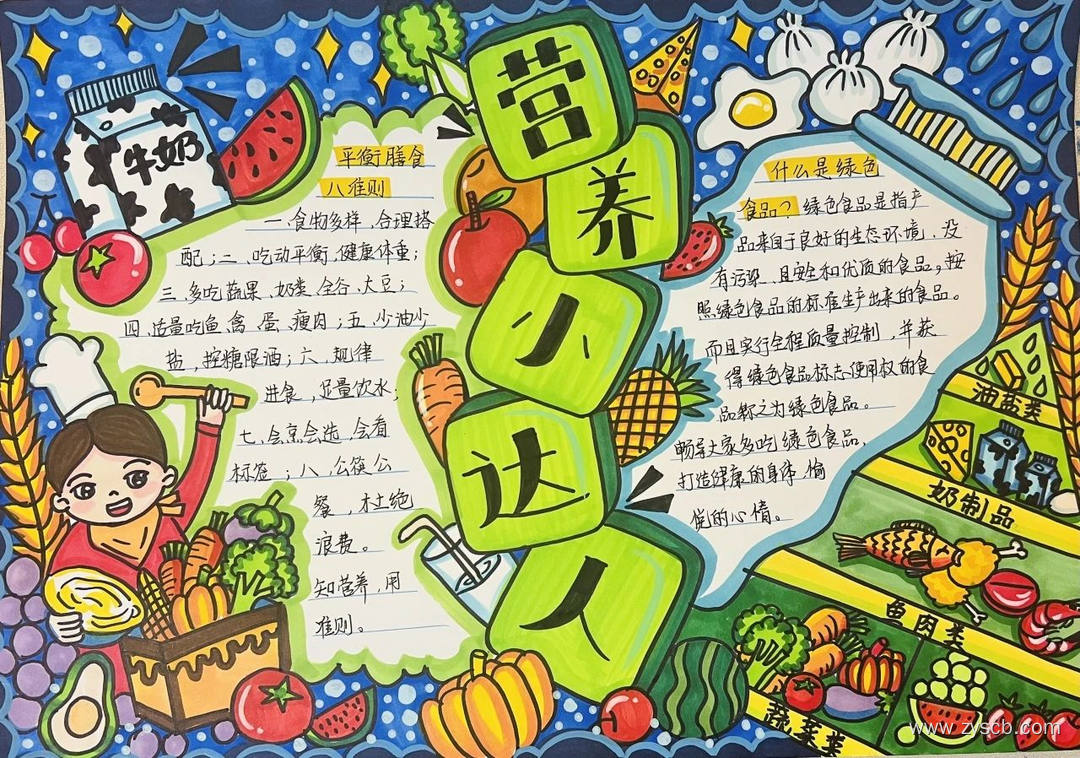 营
养
小
达
人
牛奶
平衡膳食
八准则
一.食物多样,合理搭
配;二、吃动平衡,健康体重;
三、多吃蔬果、奶类、全谷、大豆;
四、适量吃鱼、禽、蛋、瘦肉;五、少油少
盐,控糖限酒;六、规律
进食,足量饮水;
七、会烹会选,会看
标签;八、公筷公
餐,杜绝
浪费。
知营养,用
准则。
什么是绿色
食品?绿色食品是指产
品来自于良好的生态环境、没
有污染、且安全和优质的食品。按
照绿色食品的标准生产出来的食品。
而且实行全程质量控制,并获
得绿色食品标志使用权的食
品称之为绿色食品。
畅导大家多吃绿色食品,
打造健康的身体,愉
悦的心情。
油盐类
奶制品
鱼肉类
蔬菜类
www.zyscb.com